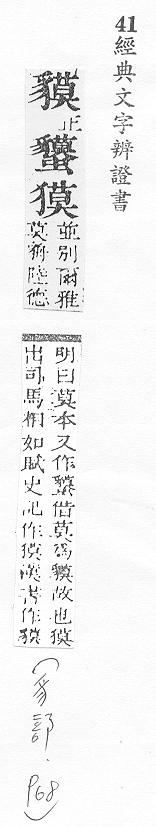 41 經典文字辨證書
貘正獏
並別爾雅
莫陸德
明曰莫本又作借莫爲貘故也獏
出司馬相如賦史記作獏漢書作
(豸部.P68)